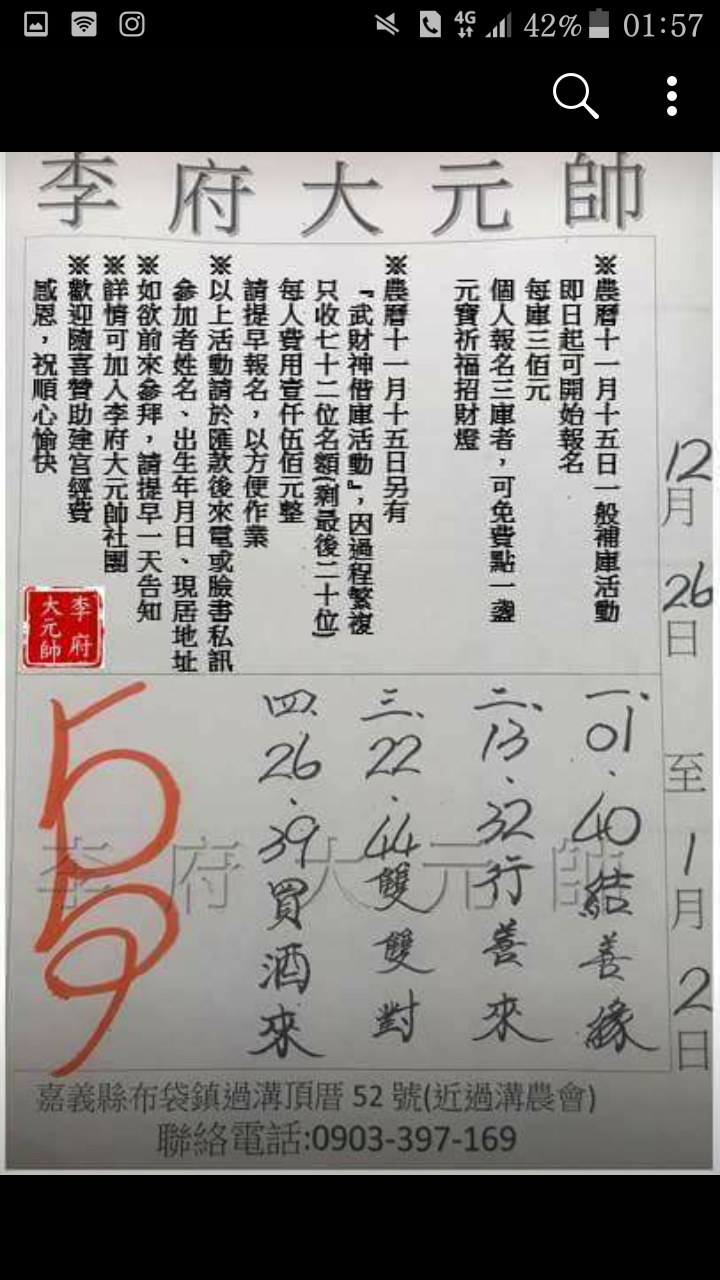 4G 42% 01:57
李府大元帥
※農曆十一月十五日一般補庫活動
即日起可開始報名
每庫三佰元
個人報名三庫者，可免費點一盞
元寶祈福招財燈
※農曆十一月十五日另有
『武財神借庫活動』，因過程繁複
只收七十二位名額(剩最後二十位)
每人費用壹仟伍佰元整
請提早報名，以方便作業
※以上活動請於匯款後來電或臉書私訊
參加者姓名、出生年月日、現居地址
※如欲前來參拜，請提早一天告知
※詳情可加入李府大元帥社團
※歡迎隨喜贊助建宮經費
感恩，祝順心愉快
李府
大元帥
12月26日至1月2日
一、01.40結善緣
二、13.32行善來
三、22.44雙雙對
四、26.39買酒來
李府大元帥
嘉義縣布袋鎮過溝頂厝 52 號(近過溝農會)
聯絡電話:0903-397-169